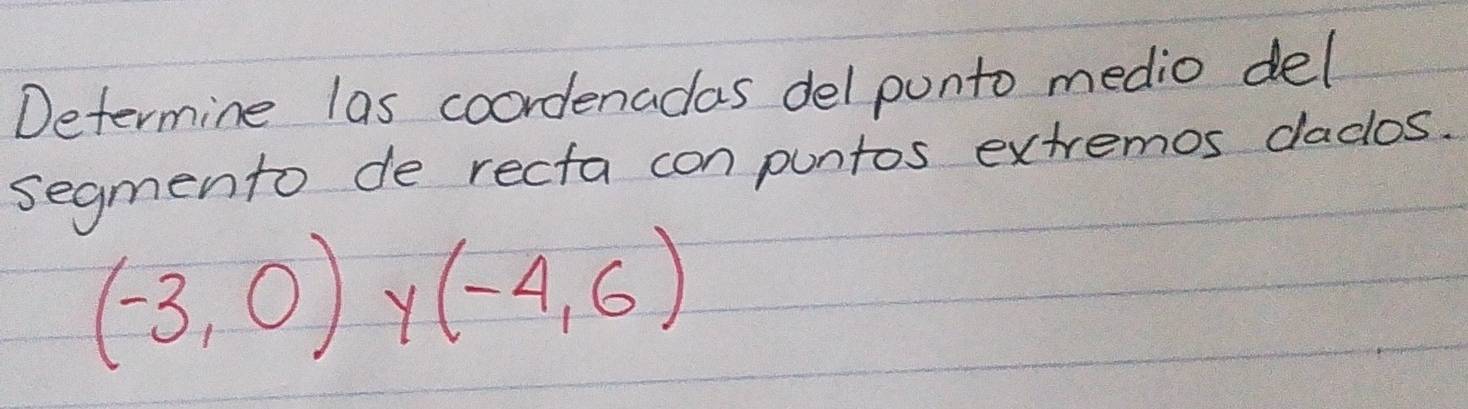 Determine las coordenadas del punto medio del
segmento de recta con puntos extremos dados.
(-3, 0) y (-4, 6)